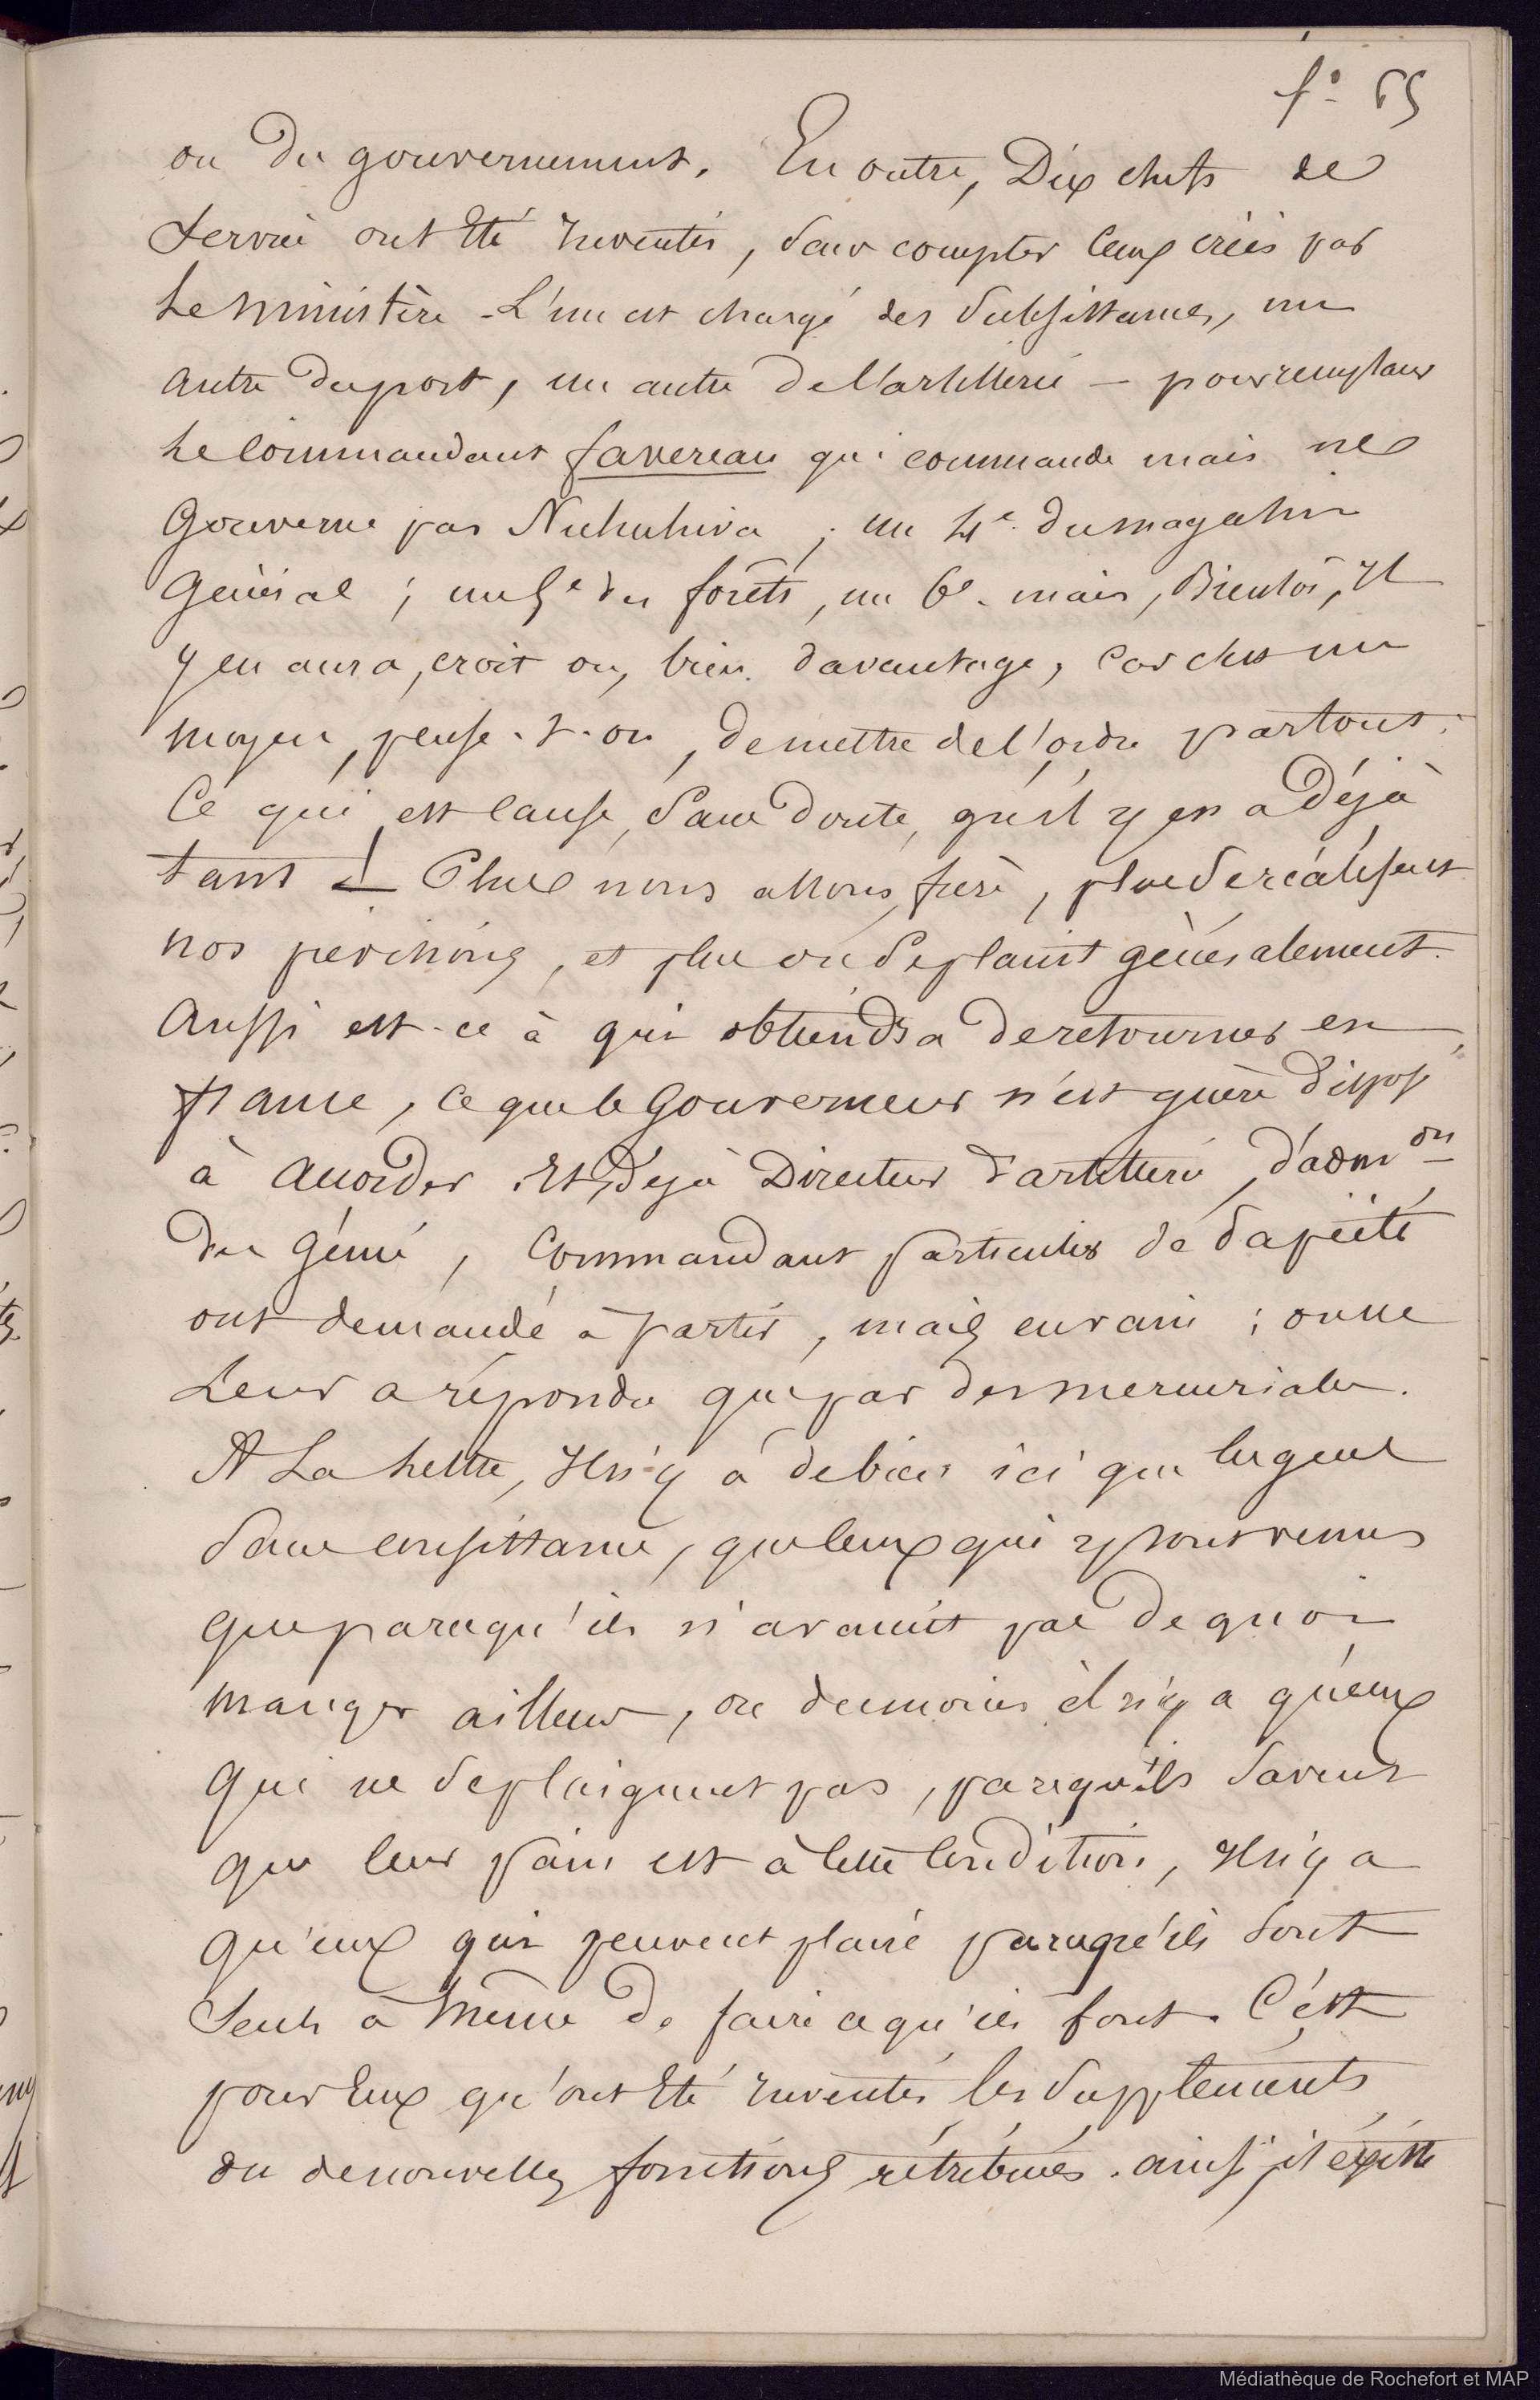 fo. 65
ou du gouvernement. En outre, Dix chefs de
Service ont été inventés, sans compter ceux créés par
le Ministère - L'un est chargé des Subsistances, un
autre du port, un autre de l'artillerie — pour remplacer
le Commandant favereau qui commande mais ne
Gouverne pas Nukuhiva ; un 4e. du magasin
Général ; un 5e des forêts, un 6e. mais, Bientôt, Il
y en aura, croit on, bien davantage, Car c'est un
moyen, pense-t-on, de mettre de l'ordre partout.
Ce qui est Cause, Sans Doute, qu'il y en a Déjà
tant ! Plus nous allons, frère, plus se réalisent
nos prévisions, et plus on se plaint généralement.
Aussi est-ce à qui obtiendra de retourner en
france, Ce que le Gouverneur n'est guère Disposé
à accorder. Et, Déjà Directeur d'artillerie, d'admon
du Génie, Commandant particulier de Papéiti
ont demandé à partir, mais en vain ; on ne
Leur a répondu que par des mercuriales.
A La lettre, Il n'y a de bien ici que les gens
Sans consistance, que ceux qui y sont venus
que parcequ'ils n'avaient pas De quoi
manger ailleurs, ou du moins il n'y a qu'eux
Qui ne se plaignent pas, parcequ'ils savent
que leur pain est à cette Condition, Il n'y a
qu'eux qui peuvent plaire parcequ'ils sont
Seuls à Même De faire ce qu'ils font. C'est
pour Eux qu'ont été inventés les Suppléments
ou de nouvelles fonctions rétribuées. ainsi, il existe
Médiathèque de Rochefort et MAP